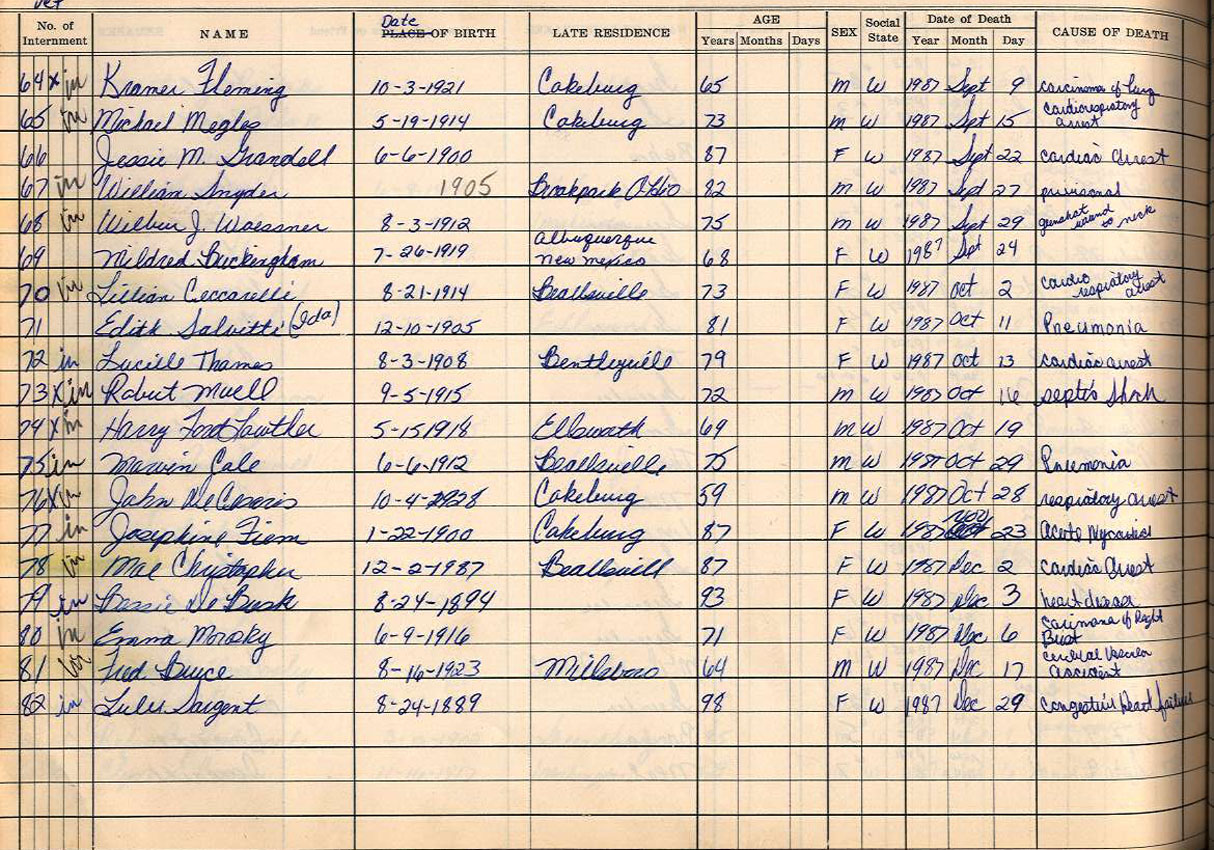 Date
No. of Internment NAME PLACE OF BIRTH LATE RESIDENCE AGE Years Months Days SEX Social State Date of Death Year Month Day CAUSE OF DEATH
64 x in Kramer Fleming 10-3-1921 Cokeburg 65 m W 1987 Sept 9 carcinoma of lung
65 in Michael Megles 5-19-1914 Cokeburg 73 m W 1987 Spt 15 cardiorespiratory arrest
66 Jessie M. Grandell 6-6-1900 87 F W 1987 Sept 22 cardiac arrest
67 in William Snyder 1905 Brookpark Ohio 82 m W 1987 Sept 27
68 in Wilbur J. Woessner 8-3-1912 75 m W 1987 Sept 29 gunshot wound to neck
69 Mildred Buckingham 7-26-1919 Albuquerque New Mexico 68 F W 1987 Spt 24
70 in Lillian Ceccarelli 8-21-1914 Beallsville 73 F W 1987 Oct 2 cardio respiratory arrest
71 Edith Salvitti (Ida) 12-10-1905 81 F W 1987 Oct 11 Pneumonia
72 in Lucille Thames 8-3-1908 Bentleyville 79 F W 1987 Oct 13 cardiac arrest
73 x in Robert 9-5-1915 72 m W 1987 Oct 16
74 x in Harry 5-15 1918 Ellsworth 69 m W 1987 Oct 19
75 in Marvin Cale 6-6-1912 Beallsville 75 m W 1987 Oct 29 Pneumonia
76 x in John 10-4-1928 Cokeburg 59 m W 1987 Oct 28 respiratory arrest
77 in Josephine Fiem 1-22-1900 Cokeburg 87 F W 1987 Nov 23 Acute
78 in Mae Chistopher 12-2-1987 Beallsvill 87 F W 1987 Dec 2 Cardiac Arrest
79 in Bessie De Busk 8-24-1894 93 F W 1987 Dec 3 heart disease
80 in Emma Morsky 6-9-1916 71 F W 1987 Dec 6 of Right
81 Fred Bruce 8-16-1923 Millsboro 64 M W 1987 Dec 17 accident
82 in Lulu Sargent 8-24-1889 98 F W 1987 Dec 29 Congestive heart failure